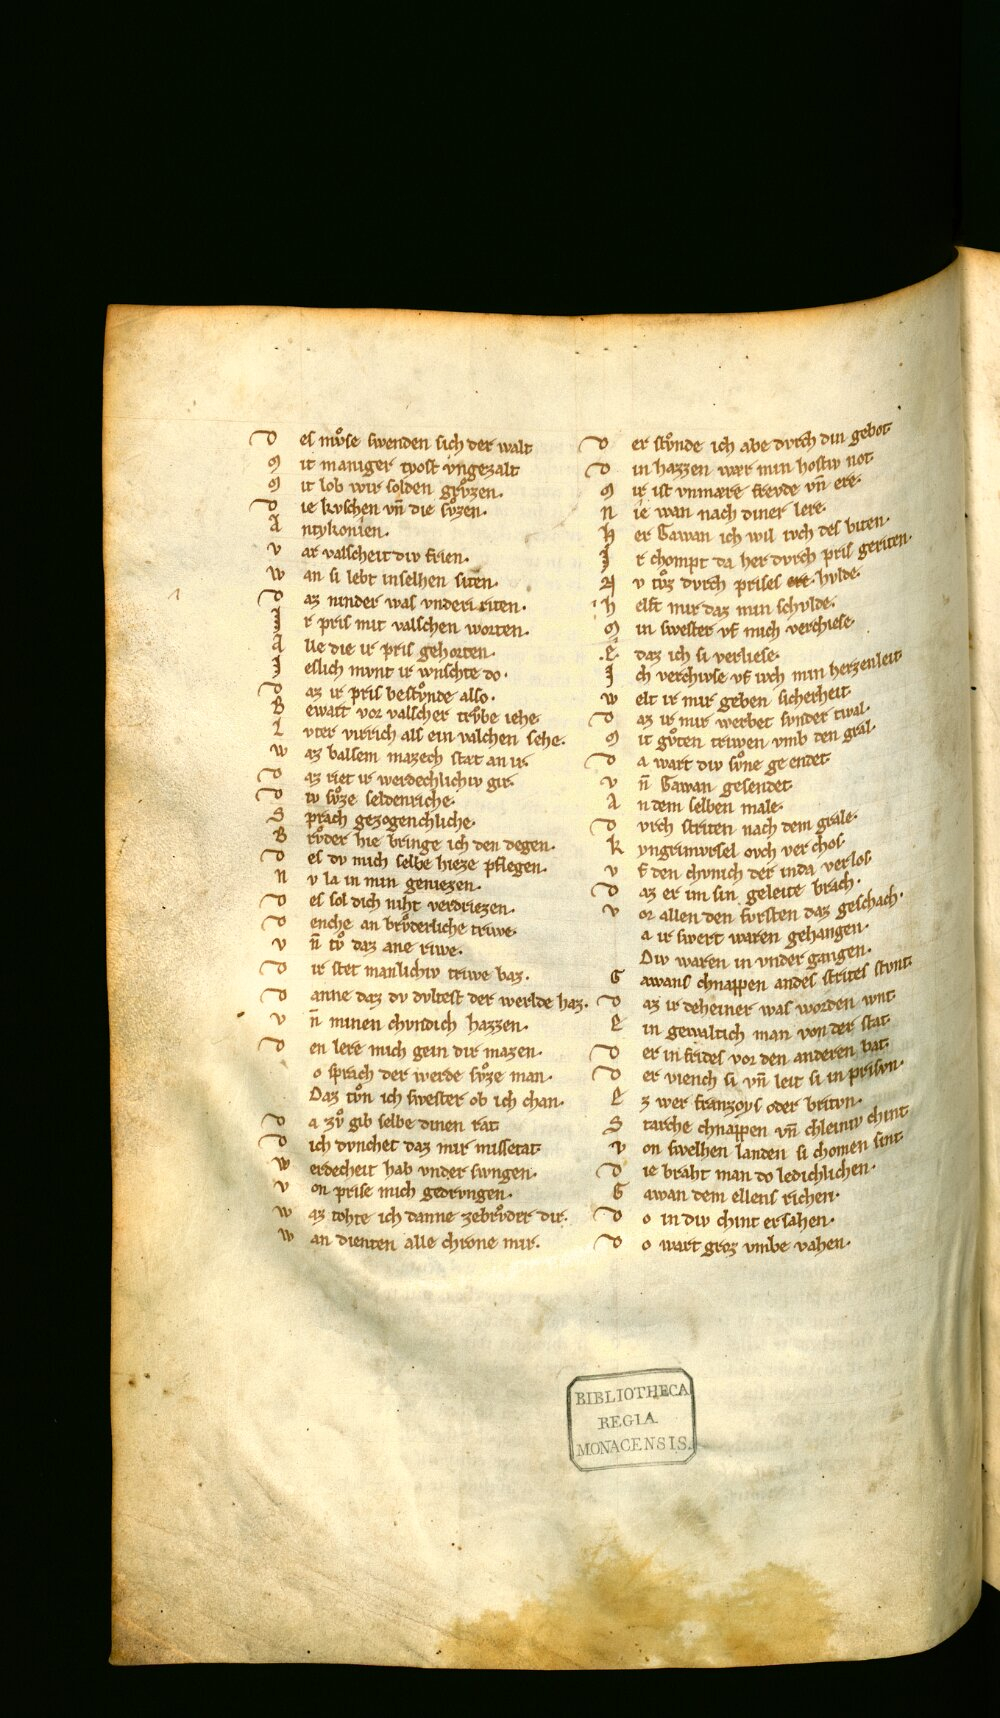 D es mvͦse swenden sich der walt
M it maniger tyost vngezalt
M it lob wir solden grvͦzen.
D ie kvschen vn̄ die svͦzen.
A ntykonien.
V ar valscheit div frien.
W an si lebt inselhen siten.
D az ninder was vnderi riten.
I r pris mit valschen worten.
A lle die ir pris gehorten.
I eslich mvnt ir wnschte do.
D az ir pris bestvͦnde also.
B ewart vor valscher trvͤbe iehe
L vter virrich als ein valchen sehe.
W az balsem mazech stæt an ir
D az riet ir werdechlichiv gir.
D iv svͦze seldenriche.
S prach gezogenchliche.
B rvͦder hie bringe ich den degen.
D es dv mich selbe hieze pflegen.
N v la in min geniezen.
D es sol dich niht verdriezen.
D enche an brvͦderliche triwe.
V n̄ tvͦ daz ane riwe.
D ir stet manlichiv triwe baz.
D anne daz dv dvltest der werlde haz.
V n̄ minen chvndich hazzen.
D en lere mich gein dir mazen.
o sprach der werde svͦze man.
Daz tvͦn ich swester ob ich chan.
D a zvͦ gib selbe dinen rat
D ich dvnchet daz mir missetat
W erdecheit hab vnder swngen.
V on prise mich gedrvngen.
W az tohte ich danne zebrvͦder dir.
W an dienten alle chrone mir.
D er stvͦnde ich abe dvrch din gebot
D in hazzen wær min hostiv not
M ir ist vnmære frevde vn̄ ere.
N ie wan nach diner lere.
H er Gawan ich wil ivch des biten.
I r chompt da her dvrch pris geriten.
N v tvͦz dvrch prises ere hvlde.
H elft mir daz min schvlde.
M in swester vf mich verchiese
E daz ich si verliese.
I ch verchivse vf ivch min herzenleit
W elt ir mir geben sicherheit
D az ir mir werbet svnder twal.
M it gvͦten triwen vmb den gral.
D a wart div svͦne ge endet
V n̄ Gawan gesendet
A n dem selben male.
D vrch striten nach dem grale.
K yngrimvrsel ovch ver chos
V f den chvnich der inda verlos
D az er im sin geleite brach.
V or allen den fvrsten daz geschach.
a ir swert waren gehangen.
Div waren in vnder gangen.
G awans chnappen andes strites stvnt
D az ir deheiner was worden wnt
E in gewaltich man von der stat
D er in frides vor den anderen bat
D er viench si vn̄ leit si in prisvn.
E z wer franzoys oder britvn.
S tarche chnappen vn̄ chleiniv chint
V on swelhen landen si chomen sint
D ie braht man do ledichlichen.
G awan dem ellens richen.
D o in div chint ersahen.
D o wart groz vmbe vahen.
BIBLIOTHECA
REGIA
MONACENSIS.